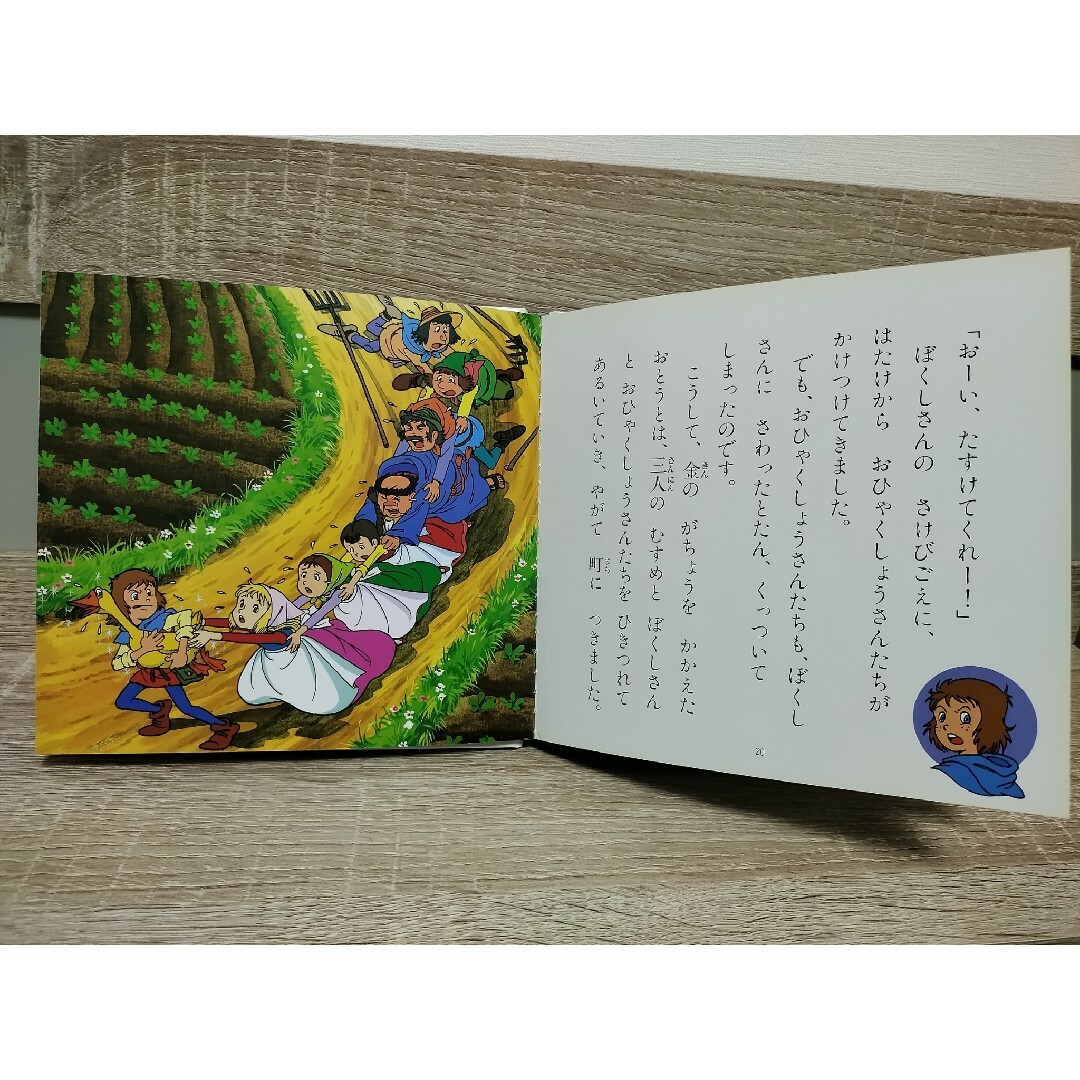 「おーい、たすけてくれー！」
ぼくしさんの さけびごえに、
はたけから おひゃくしょうさんたちが
かけつけてきました。
でも、おひゃくしょうさんたちも、ぼくし
さんに さわったとたん、くっついて
しまったのです。
こうして、金の がちょうを かかえた
きん
おとうとは、三人の むすめと ぼくしさん
さんにん
と おひゃくしょうさんたちを ひきつれて
あるいていき、やがて 町に つきました。
まち
20